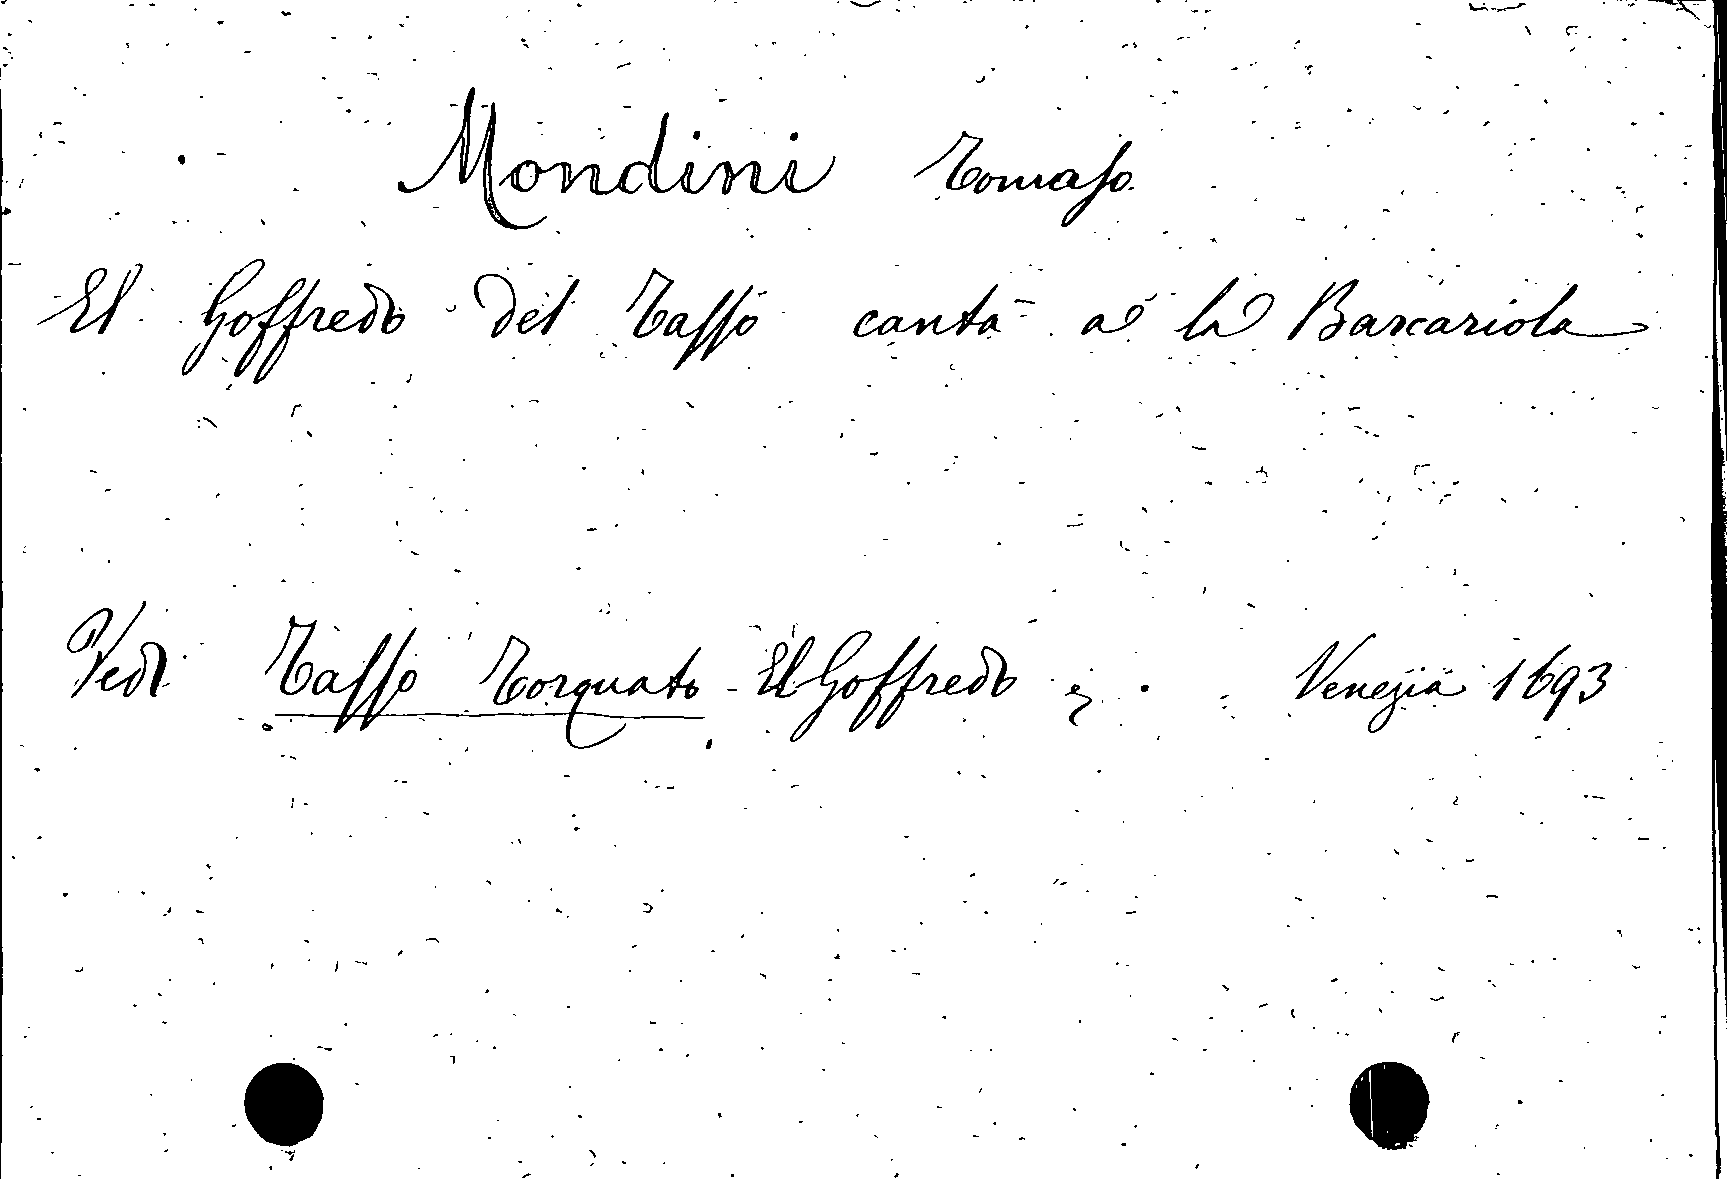 Mondini Tomaso
El Goffredo del Tasso cantà a la Barcariola
Vedi Tasso Torquato - El Goffredo Venezia 1693